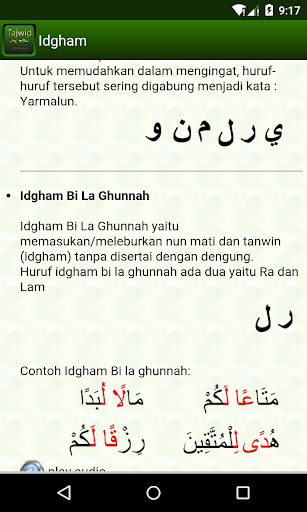 9:17
Tajwid
Idgham
Untuk memudahkan dalam mengingat, huruf-
huruf tersebut sering digabung menjadi kata :
Yarmalun.
ي ر ل م ن و
Idgham Bi La Ghunnah
Idgham Bi La Ghunnah yaitu
memasukan/meleburkan nun mati dan tanwin
(idgham) tanpa disertai dengan dengung.
Huruf idgham bi la ghunnah ada dua yaitu Ra dan
Lam
ر ل
Contoh Idgham Bi la ghunnah:
مَتَاعًا لَكُمْ مَالًا لُبَدًا
هُدًى لِلْمُتَّقِينَ رِزْقًا لَكُمْ
play audio